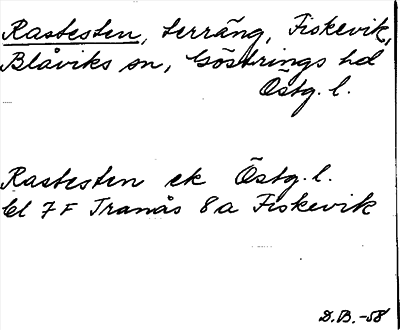 Rastesten, terräng, Fiskevik,
Blåviks sn, Göstrings hd
Östg. l.
Rastesten ek Östg. l.
bl 7F Tranås 8a Fiskevik
D.B. -58